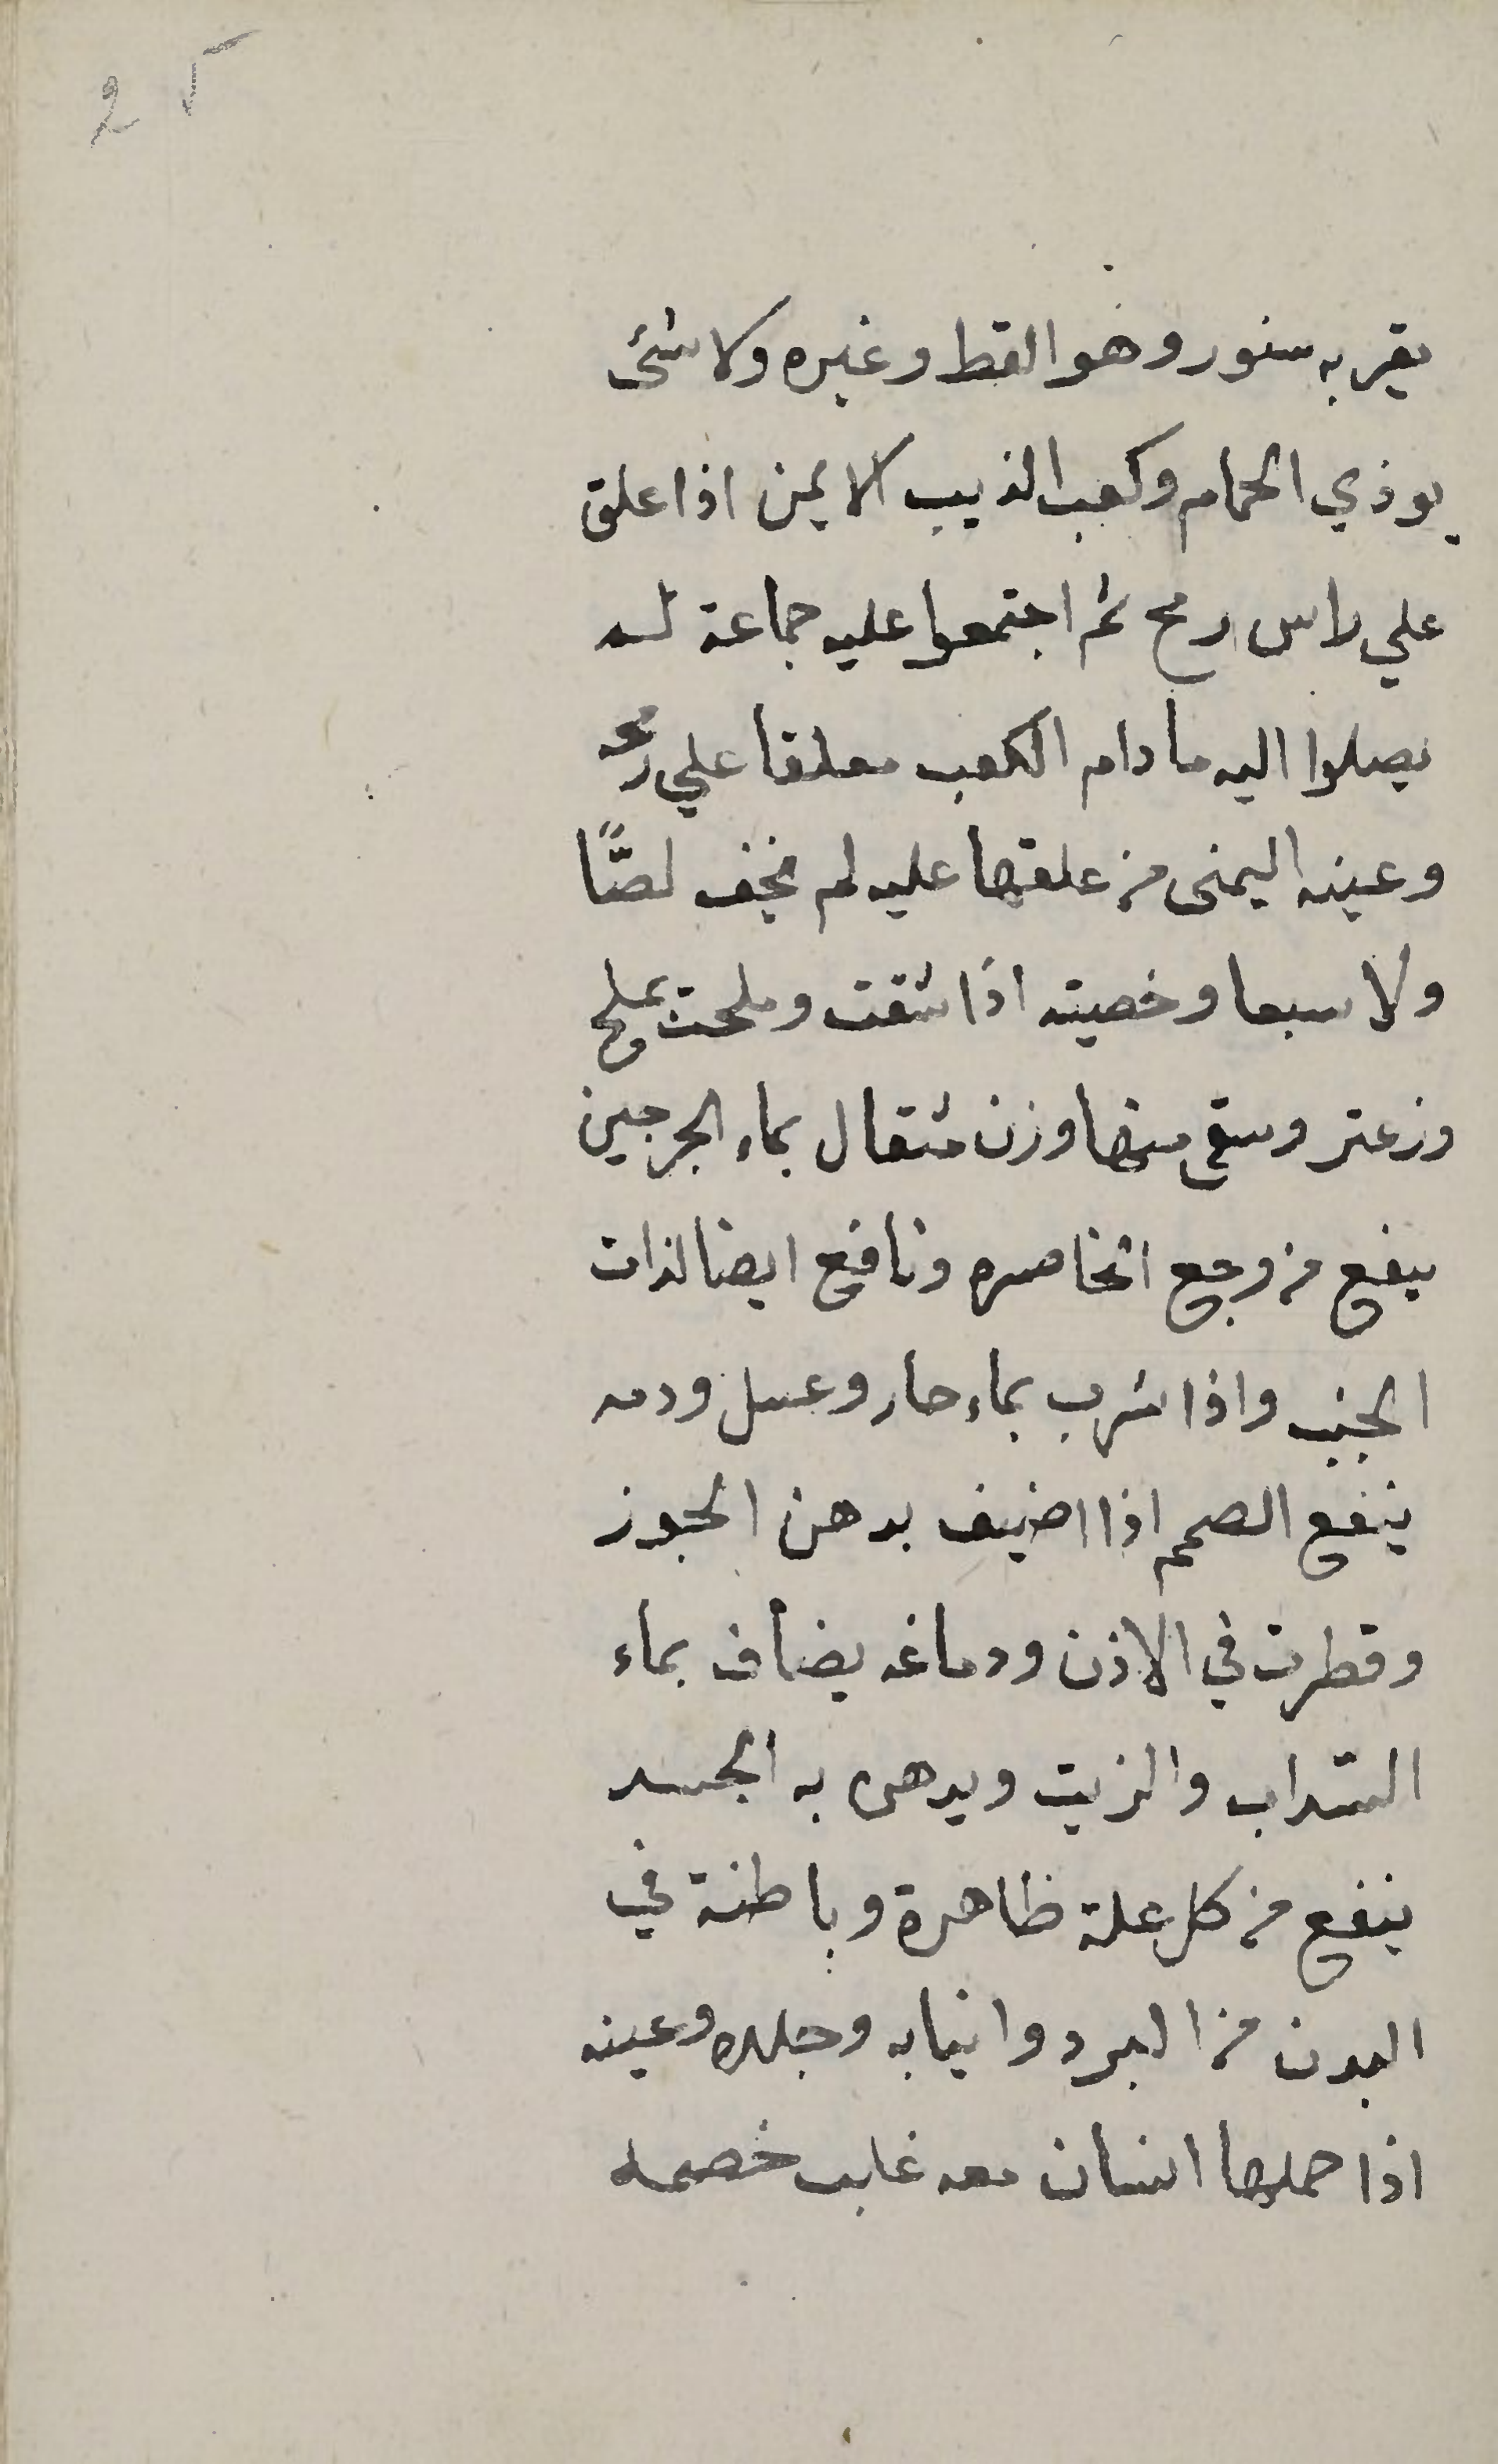 25
يقربه سنور وهو القط وغيره ولا شئ
يوذي الحمام وكعب الذيب الايمن اذا علق
علي راس رمح ثم اجتمعوا عليه جماعة لم
يصلوا اليه ما دام الكعب معلقا علي رمحه
وعينه اليمنى من علقها عليه لم يخف لصًّا
ولا سبعا وخصيته اذا شقت وملحت بملح
وزعتر وسقي منها وزن مثقال بماء الجرجين
ينفع من وجع الخاصره ونافع ايضا لذات
الجنب واذا شرب بماء حار وعسل ودمه
ينفع الصمم اذا اضيف بدهن الجوز
وقطرت في الاذن ودماغه يضاف بماء
السداب والزيت ويدهن به الجسد
ينفع من كل علة ظاهرة وباطنة في
البدن من البرد وانيابه وجلده وعينه
اذا حملها انسان معه غلب خصمه